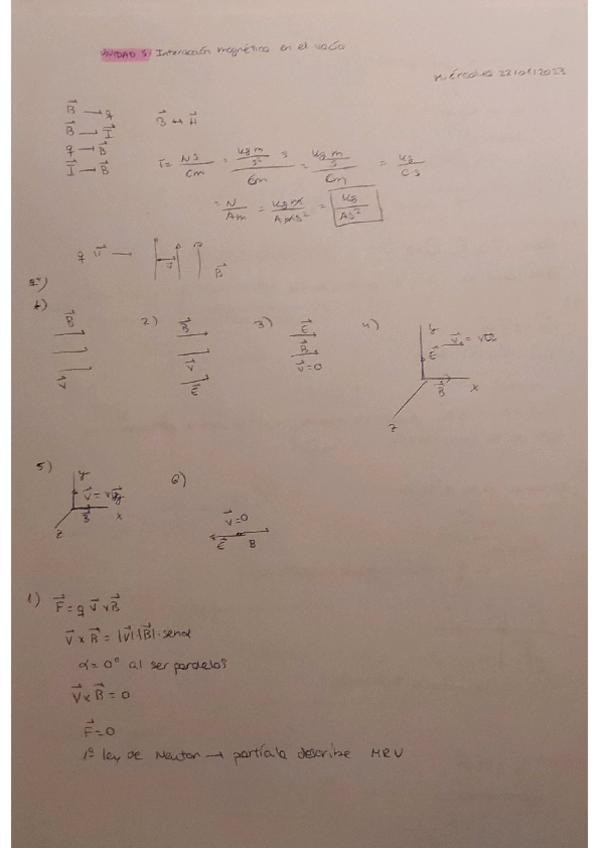 UNIDAD 5: Interacción magnética en el vacío
Miércoles 22/01/2023
B⃗ → q
B⃗ → I⃗ B⃗ ↔ I⃗
q → B⃗
I⃗ → B⃗
T = Ns/Cm = (kg m/s² s)/Cm = (kg m/s)/Cm = kg/Cs
= N/Am = kg m/Ams² = kg/As²
q v⃗ → v⃗ B⃗
1) B⃗ v⃗
2) B⃗ v⃗ E⃗
3) E⃗ B⃗ v⃗=0
4) y E⃗ B⃗ x z
5) y B⃗ x z
6) v⃗=0 E⃗ B
1) F⃗ = q v⃗ x B⃗
v⃗ x B⃗ = |v⃗|·|B⃗|·senα
α = 0° al ser paralelos
v⃗ x B⃗ = 0
F⃗ = 0
1ª ley de Newton → partícula describe MRU